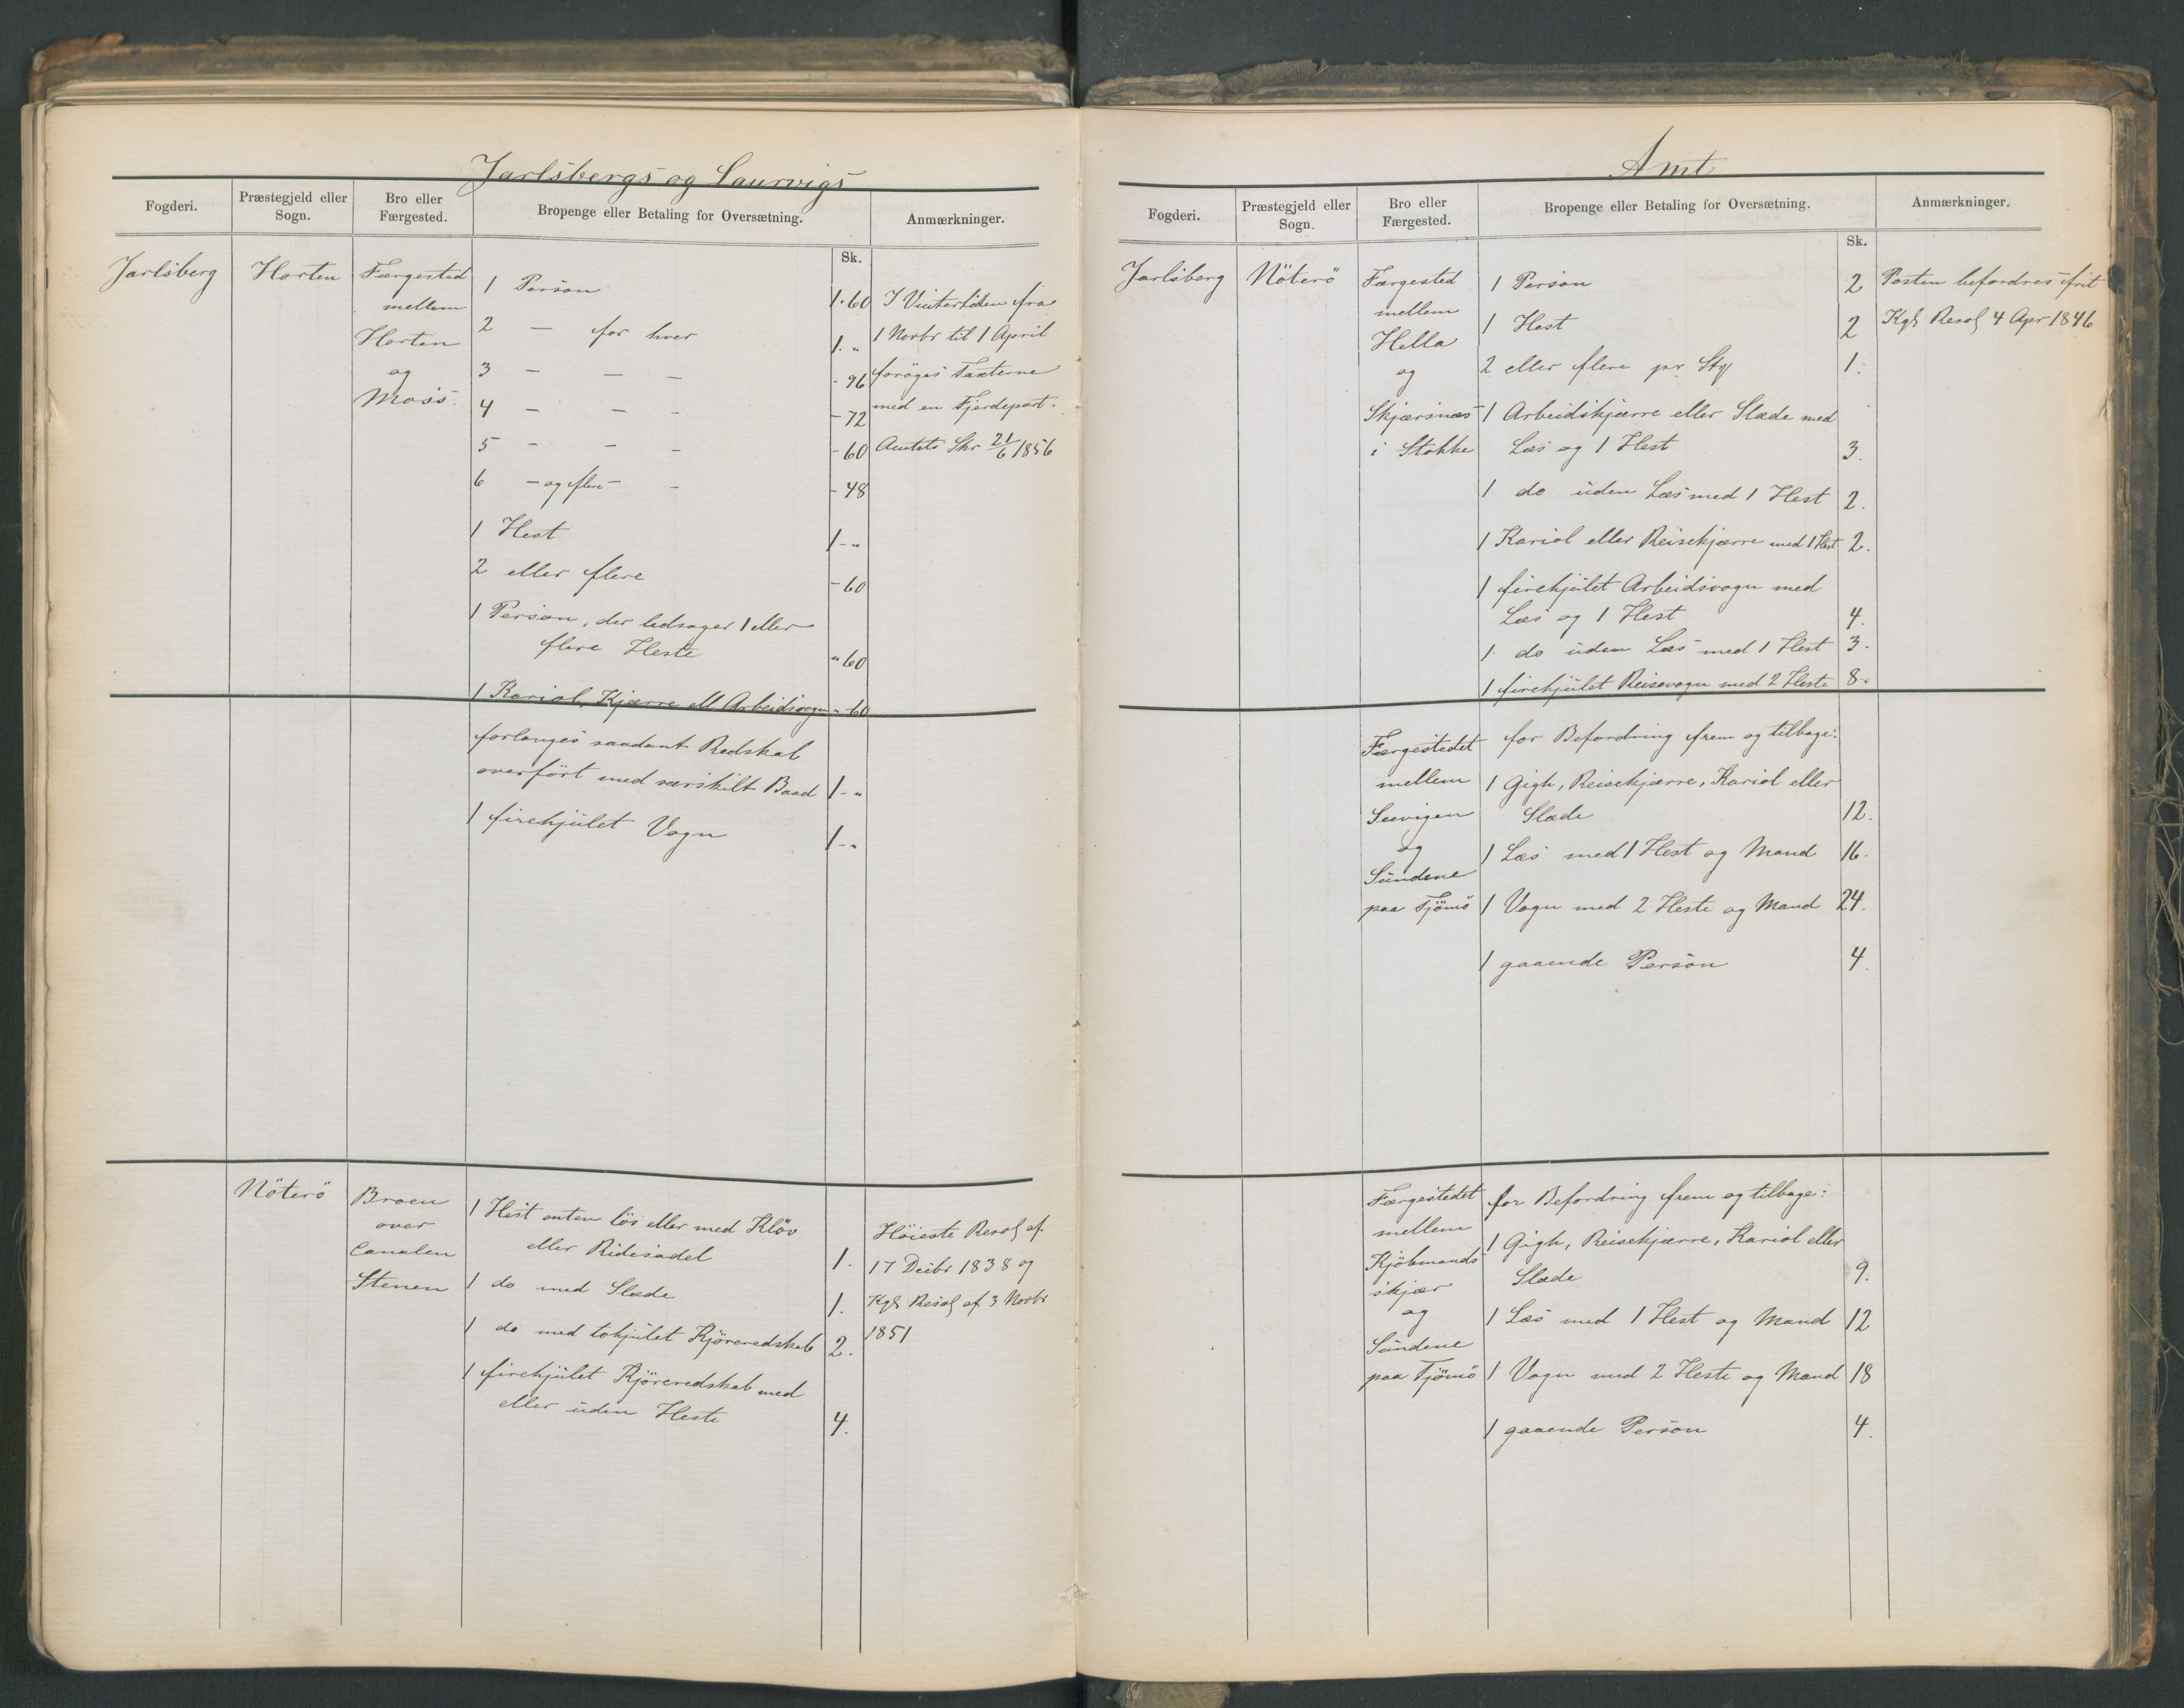 Jarlsbergs og Laurvigs
Fogderi. Præstegjeld eller Sogn. Bro eller Færgested. Bropenge eller Betaling for Oversætning. Anmærkninger.
Sk.
Jarlsberg Horten Færgested 1 Person 1.60 I Vintertiden fra
mellem 2 — for hver 1. „ 1 Novbr til 1 April
Horten 3 — — — - 96 forøges Taxterne
og 4 — — - - 72 med en Fjerdepart.
Moss. 5 - - - - 60 Amtets Skr 21/6 1856
6 — og flere — - - 48
1 Hest 1 - „
2 eller flere - 60
1 Person, der ledsager 1 eller
flere Heste „ 60
1 Kariol, Kjærre ell Arbeidsvogn „ 60
forlanges saadant Redskab
overført med særskilt Baad 1 - „
1 firehjulet Vogn 1 - „
Nöterö Broen 1 Hest enten lös eller med Klöv Höieste Resol af
over eller Ridesadel 1. 17 Decbr 1838 og
Canalen 1 do med Slæde 1. Kgl Resol af 3 Novbr
Stenen 1 do med tohjulet Kjöreredskab 2. 1851
1 firehjulet Kjöreredskab med
eller uden Heste 4.
Amt
Fogderi. Præstegjeld eller Sogn. Bro eller Færgested. Bropenge eller Betaling for Oversætning. Anmærkninger.
Sk.
Jarlsberg Nöterö Færgested 1 Person 2 Posten befordres frit
mellem 1 Hest 2 Kgl Resol 4 Apr 1846
Hella
og 2 eller flere pr Stk 1.
Skjærsnæs 1 Arbeidskjærre eller Slæde med
i Stokke Læs og 1 Hest 3.
1 do uden Læs med 1 Hest 2.
1 Kariol eller Reisekjærre med 1 Hest 2.
1 firehjulet Arbeidsvogn med
Læs og 1 Hest 4.
1. do uden Læs med 1 Hest 3.
1 firehjulet Reisevogn med 2 Heste 8.
Færgestedet for Befordring frem og tilbage:
mellem 1 Gigh, Reisekjærre, Kariol eller
Slæde 12.
og 1 Læs med 1 Hest og Mand 16.
Sundene
paa Tjömö 1 Vogn med 2 Heste og Mand 24.
1 gaaende Person 4.
Færgestedet for Befordring frem og tilbage:
mellem 1 Gigh, Reisekjærre, Kariol eller
Kjöbmands
skjær Slæde 9.
og 1 Læs med 1 Hest og Mand 12
Sundene
paa Tjömö 1 Vogn med 2 Heste og Mand 18
1 gaaende Person 4.